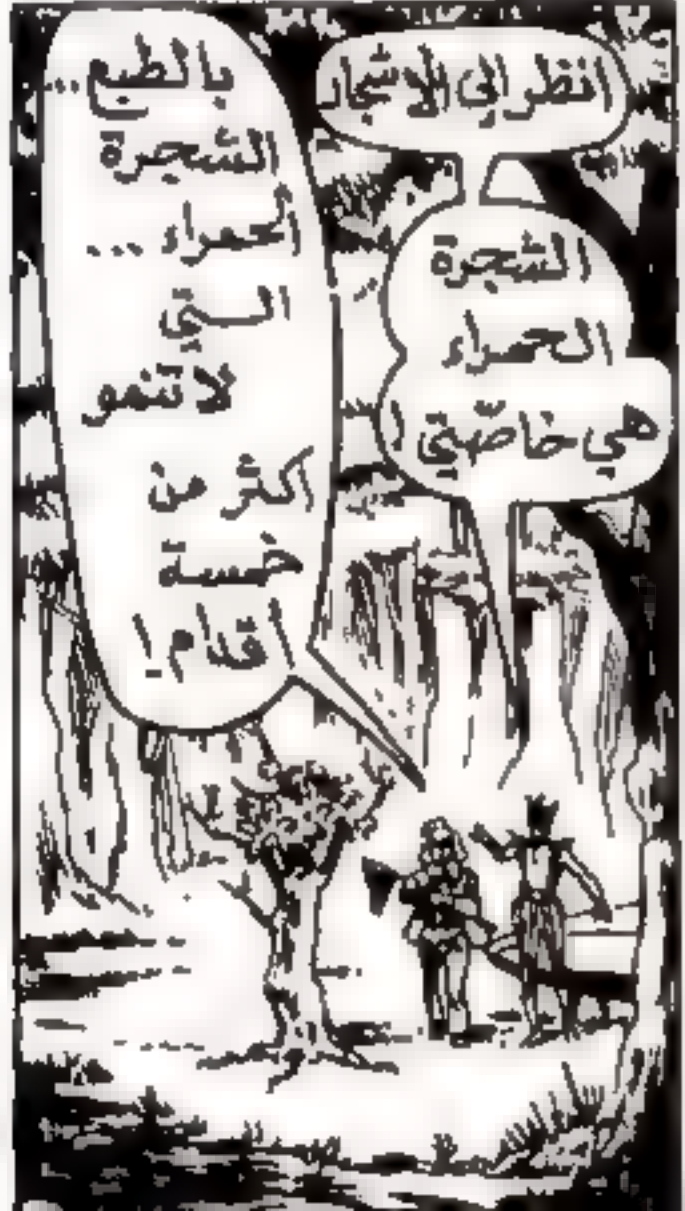 انظر الى الاشجار
الشجرة
الحمراء
هي خاصّتي !
بالطبع...
الشجرة
الحمراء ...
التي
لا تنمو
اكثر من
خمسة
اقدام !